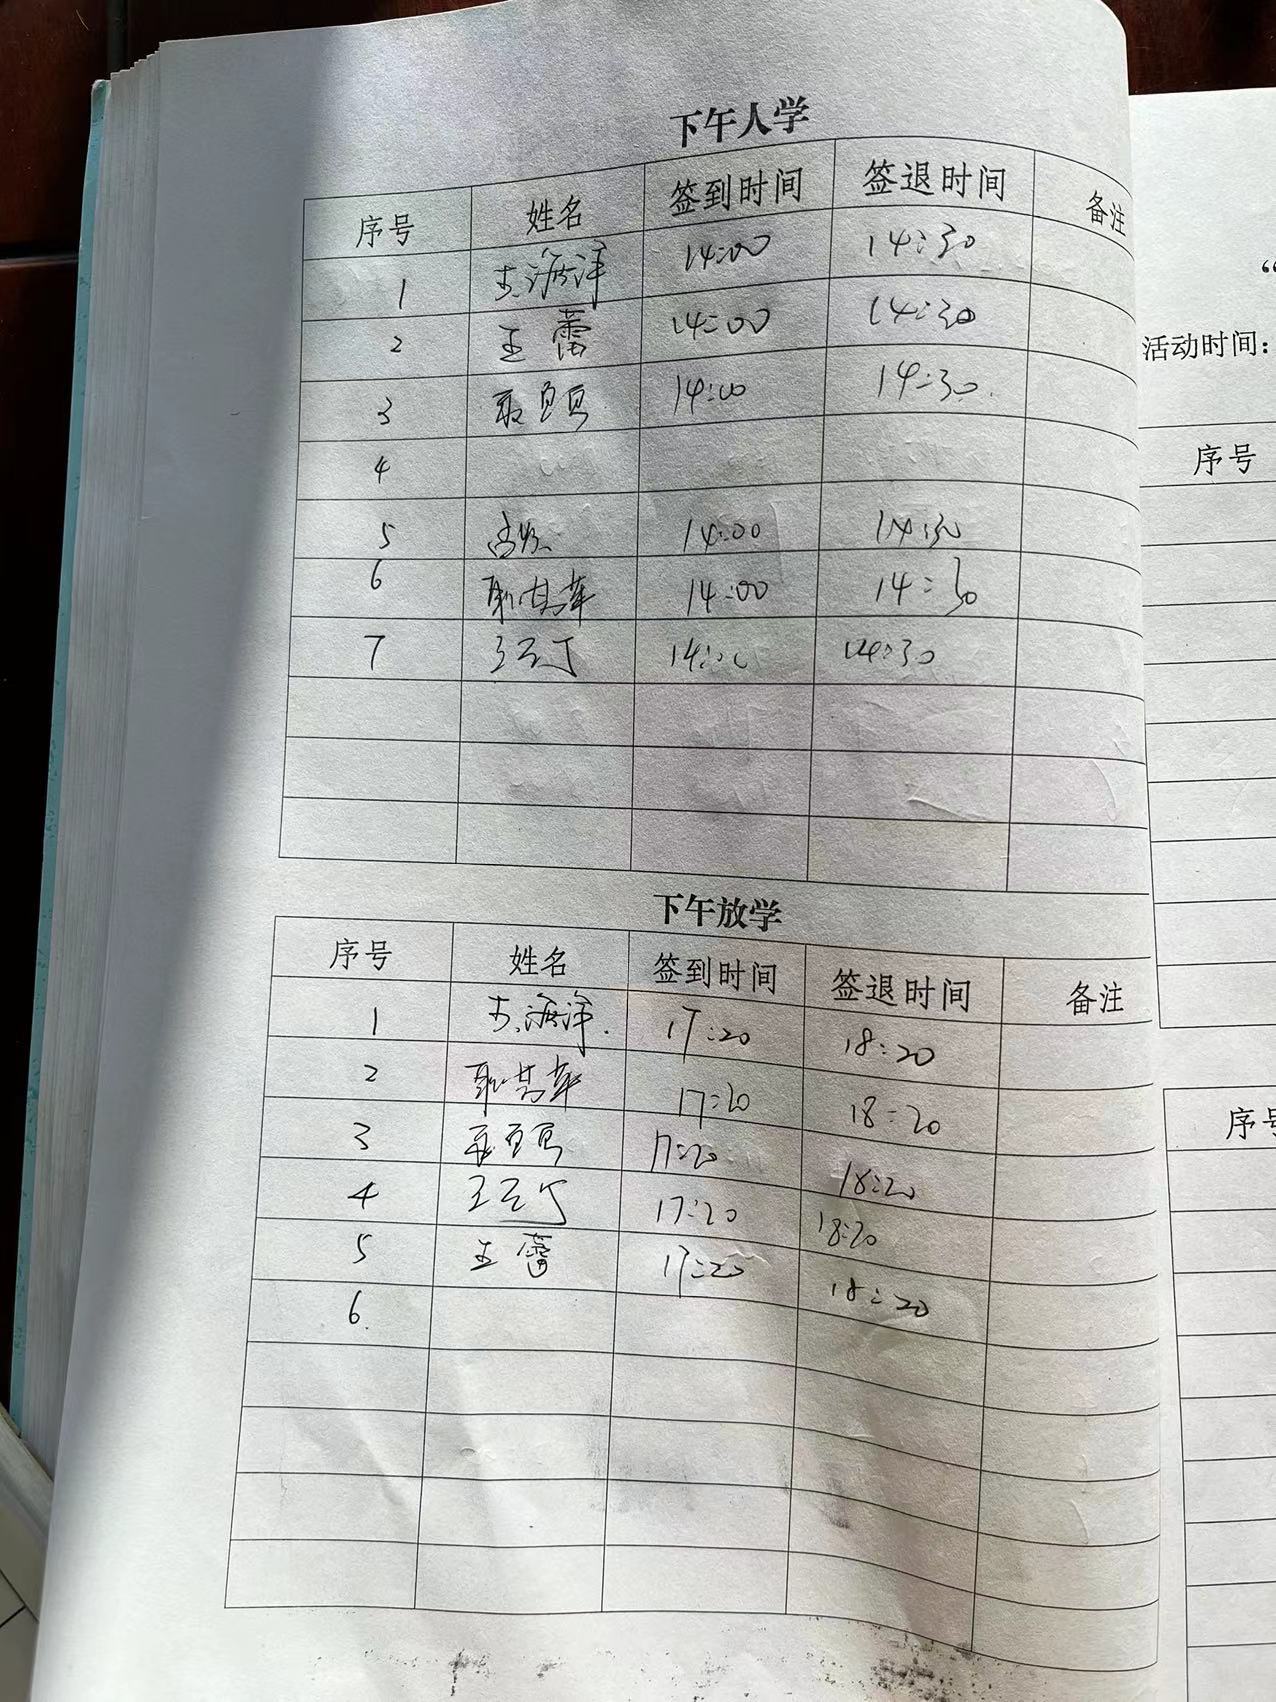 下午人学
序号 姓名 签到时间 签退时间 备注
1 海洋 14:00 14:30
2 王蕾 14:00 14:30
3 14:00 14:30
4
5 14:00 14:30
6 14:00 14:30
7 14:30
下午放学
序号 姓名 签到时间 签退时间 备注
1 海洋 17:20 18:20
2 17:20 18:20
3 17:20 18:20
4 17:20 18:20
5 王蕾 17:20 18:20
6.
“
活动时间：
序号
序号